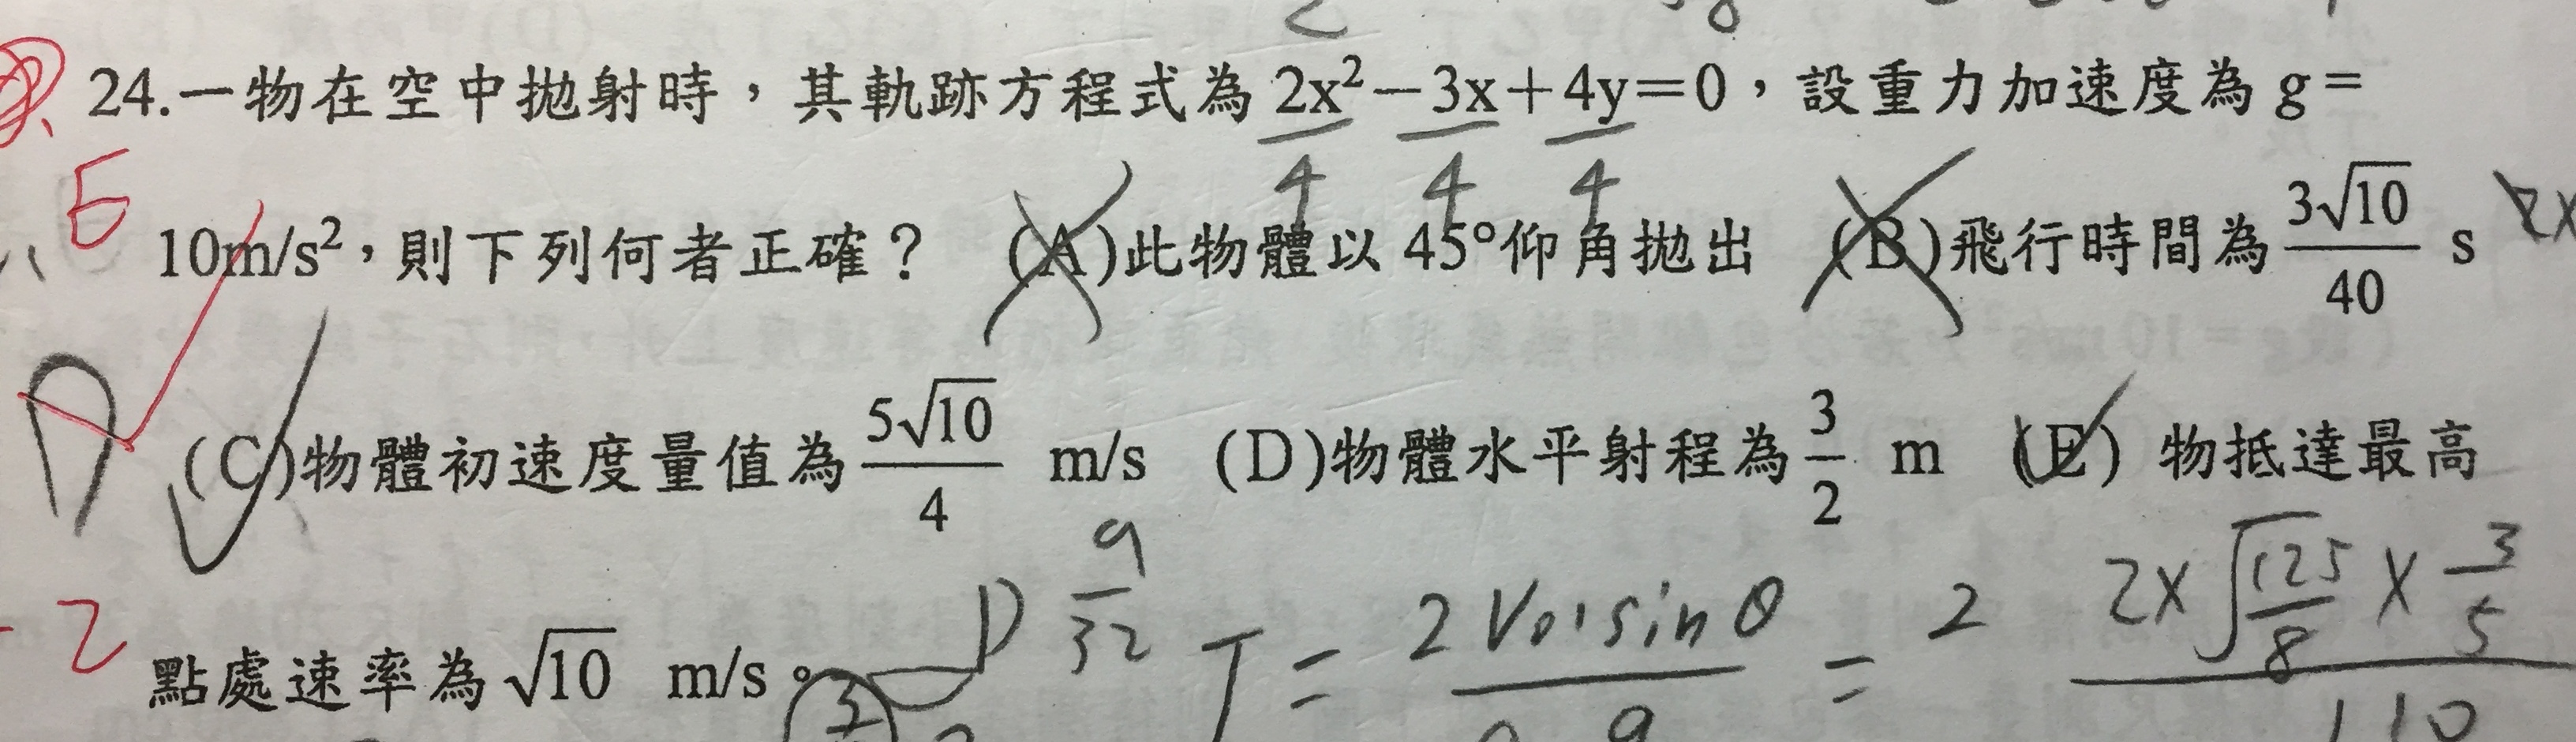 24.一物在空中拋射時，其軌跡方程式為 2x²－3x＋4y＝0，設重力加速度為 g＝
4 4 4
E
10m/s²，則下列何者正確？ (A)此物體以 45°仰角拋出 (B)飛行時間為 3√10/40 s
(C)物體初速度量值為 5√10/4 m/s (D)物體水平射程為 3/2 m (E) 物抵達最高
點處速率為 √10 m/s。
D 9/32
T = 2V₀·sinθ/g = 2×√(125/8)×3/5